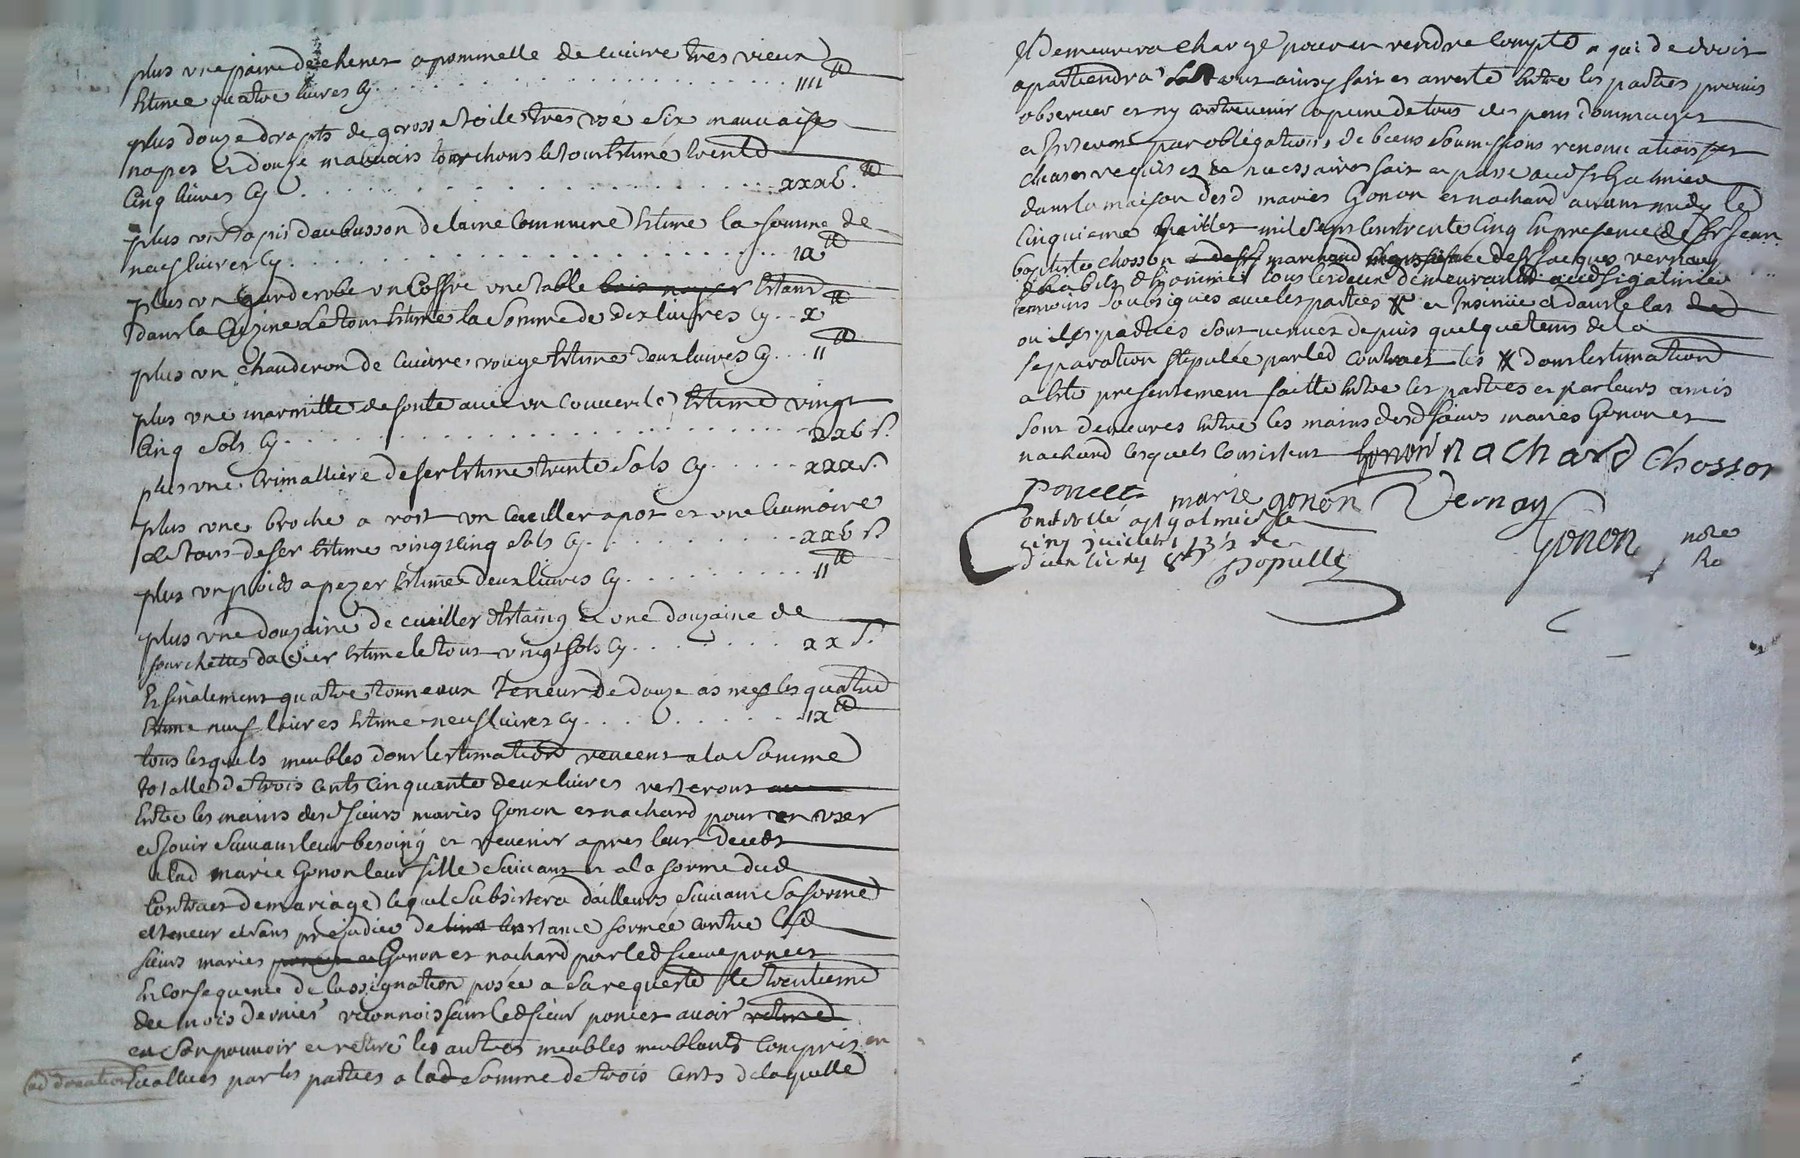 plus une paire de chenet a pommelle de cuivre tres vieux
Estimee quatre livres Cy . . . IIII ₶
plus douze drapts de grosse toile tres usé six mauvaise
napes et douze mauvais torchons le tout Estimé trente
Cinq livres Cy . . . xxxv. ₶
plus un tapis daubusson de laine Commune Estimé la somme de
neuf livres Cy . . . ix ₶
plus un garderobe un Coffre une table Estant
dans la Cuizine Le tout Estimé la Somme de dix livres Cy . . x ₶
plus un chauderon de Cuivre rouge Estimé deux livres Cy . . . II ₶
plus une marmitte de fonte avec un Couvercle Estimé vingt
Cinq sols Cy . . . xxv s.
plus une Crimalliere de fer Estimé trente Sols Cy . . . xxx s.
plus une broche a rost un Cueiller a pot et une Ecumoire
le tout de fer Estimé vingt Cinq sols Cy . . . xxv s.
plus un poids a pezer Estimé deux livres Cy . . . II ₶
plus une douzaine de cueiller d'Estaing et une douzaine de
fourchettes dacier Estimé le tout vingt sols Cy . . . xx s.
Et finalement quatre tonneaux teneur de douze asnées les quatre
neuf livres Estimé neuf livres Cy . . . ix ₶
tous lesquels meubles dont lestimation revient a la Somme
totalle de trois Cents Cinquante deux livres resteront
Entre les mains desd sieurs mariés Gonon et nachard pour en user
et Jouir Suivant leur besoing et revenir apres leur decedt
a lad marie Gonon leur fille Suivant et a la forme dud
Contract de mariage lequel Subsistera dailleurs Suivant Sa forme
et teneur et sans prejudice de linstance formée contre lesd
sieurs mariés Gonon et nachard par led sieur poncet
En Consequence de lassignation posée a Sa requeste le trentieme
du mois dernier reconnoissant led sieur poncet avoir
en Son pouvoir et retiré les autres meubles meublants Compris en
lad donation Evallués par les parties a lad Somme de trois Cents de laquelle
Il demeurera chargé pour en rendre Compte a qui de droit
apartiendra Car ainsy fait et arresté Entre les parties promis
observer et ny contrevenir a peine de tous depens dommages
et Interest par obligations de biens Soumissions renonciations et
clauses requises et necessaires fait et passé aud St Galmier
dans la maison desd mariés Gonon et nachard avant midy le
Cinquieme Juillet mil sept Cent trente Cinq En presence de Sr Jean
baptiste chosson marchand et de Sr Jacques vernay
tous les deux demeurants aud St galmier
temoins Soubsignés avec les parties
ou les parties Sont venues depuis quelque tems de la
separation stipulée par led Contract les dont lestimation
a Esté presentement faitte Entre les parties et par leurs amis
Sont demeurés Entre les mains desd sieurs mariés Gonon et
nachard lesquels Consistent Gonon nachard Chosson
Poncet marie gonon Vernay
Controllé a St galmier le
cinq Juillet 1735 Re
Populle
Gonon notre
Ro